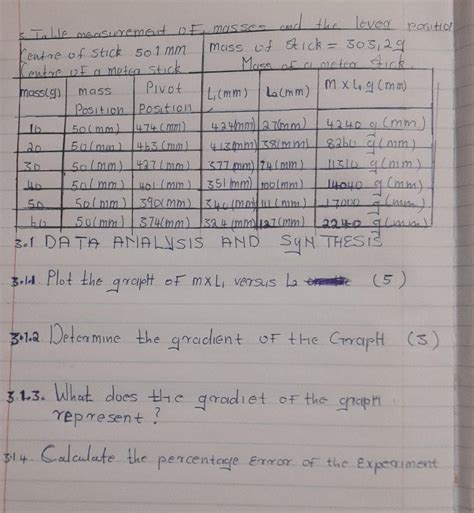 : Table measurement OF masses and the lever positio
Centre of stick 501mm mass of stick = 303,2g
Centre of a meter stick Mass of a meter stick.
mass(g) mass Position Pivot Position L1(mm) L2(mm) m x L1 g(mm)
10 50(mm) 474(mm) 424(mm) 27(mm) 4240 g(mm)
20 50(mm) 463(mm) 413(mm) 38(mm) 8260 g(mm)
30 50(mm) 427(mm) 377(mm) 74(mm) 11310 g(mm)
40 50(mm) 401(mm) 351(mm) 100(mm) 14040 g(mm)
50 50(mm) 390(mm) 340(mm) 111(mm) 17000 g(mm)
60 50(mm) 374(mm) 324(mm) 127(mm) 2240 g(mm)
3.1 DATA ANALYSIS AND SYNTHESIS
3.1.1 Plot the grapH OF mxL1 versus L2 (5)
3.1.2 Determine the gradient OF tHe GrapH (3)
3.1.3. What does tHe gradiet of the grapH
represent?
3.1.4. Calculate the percentage Error of the Experiment